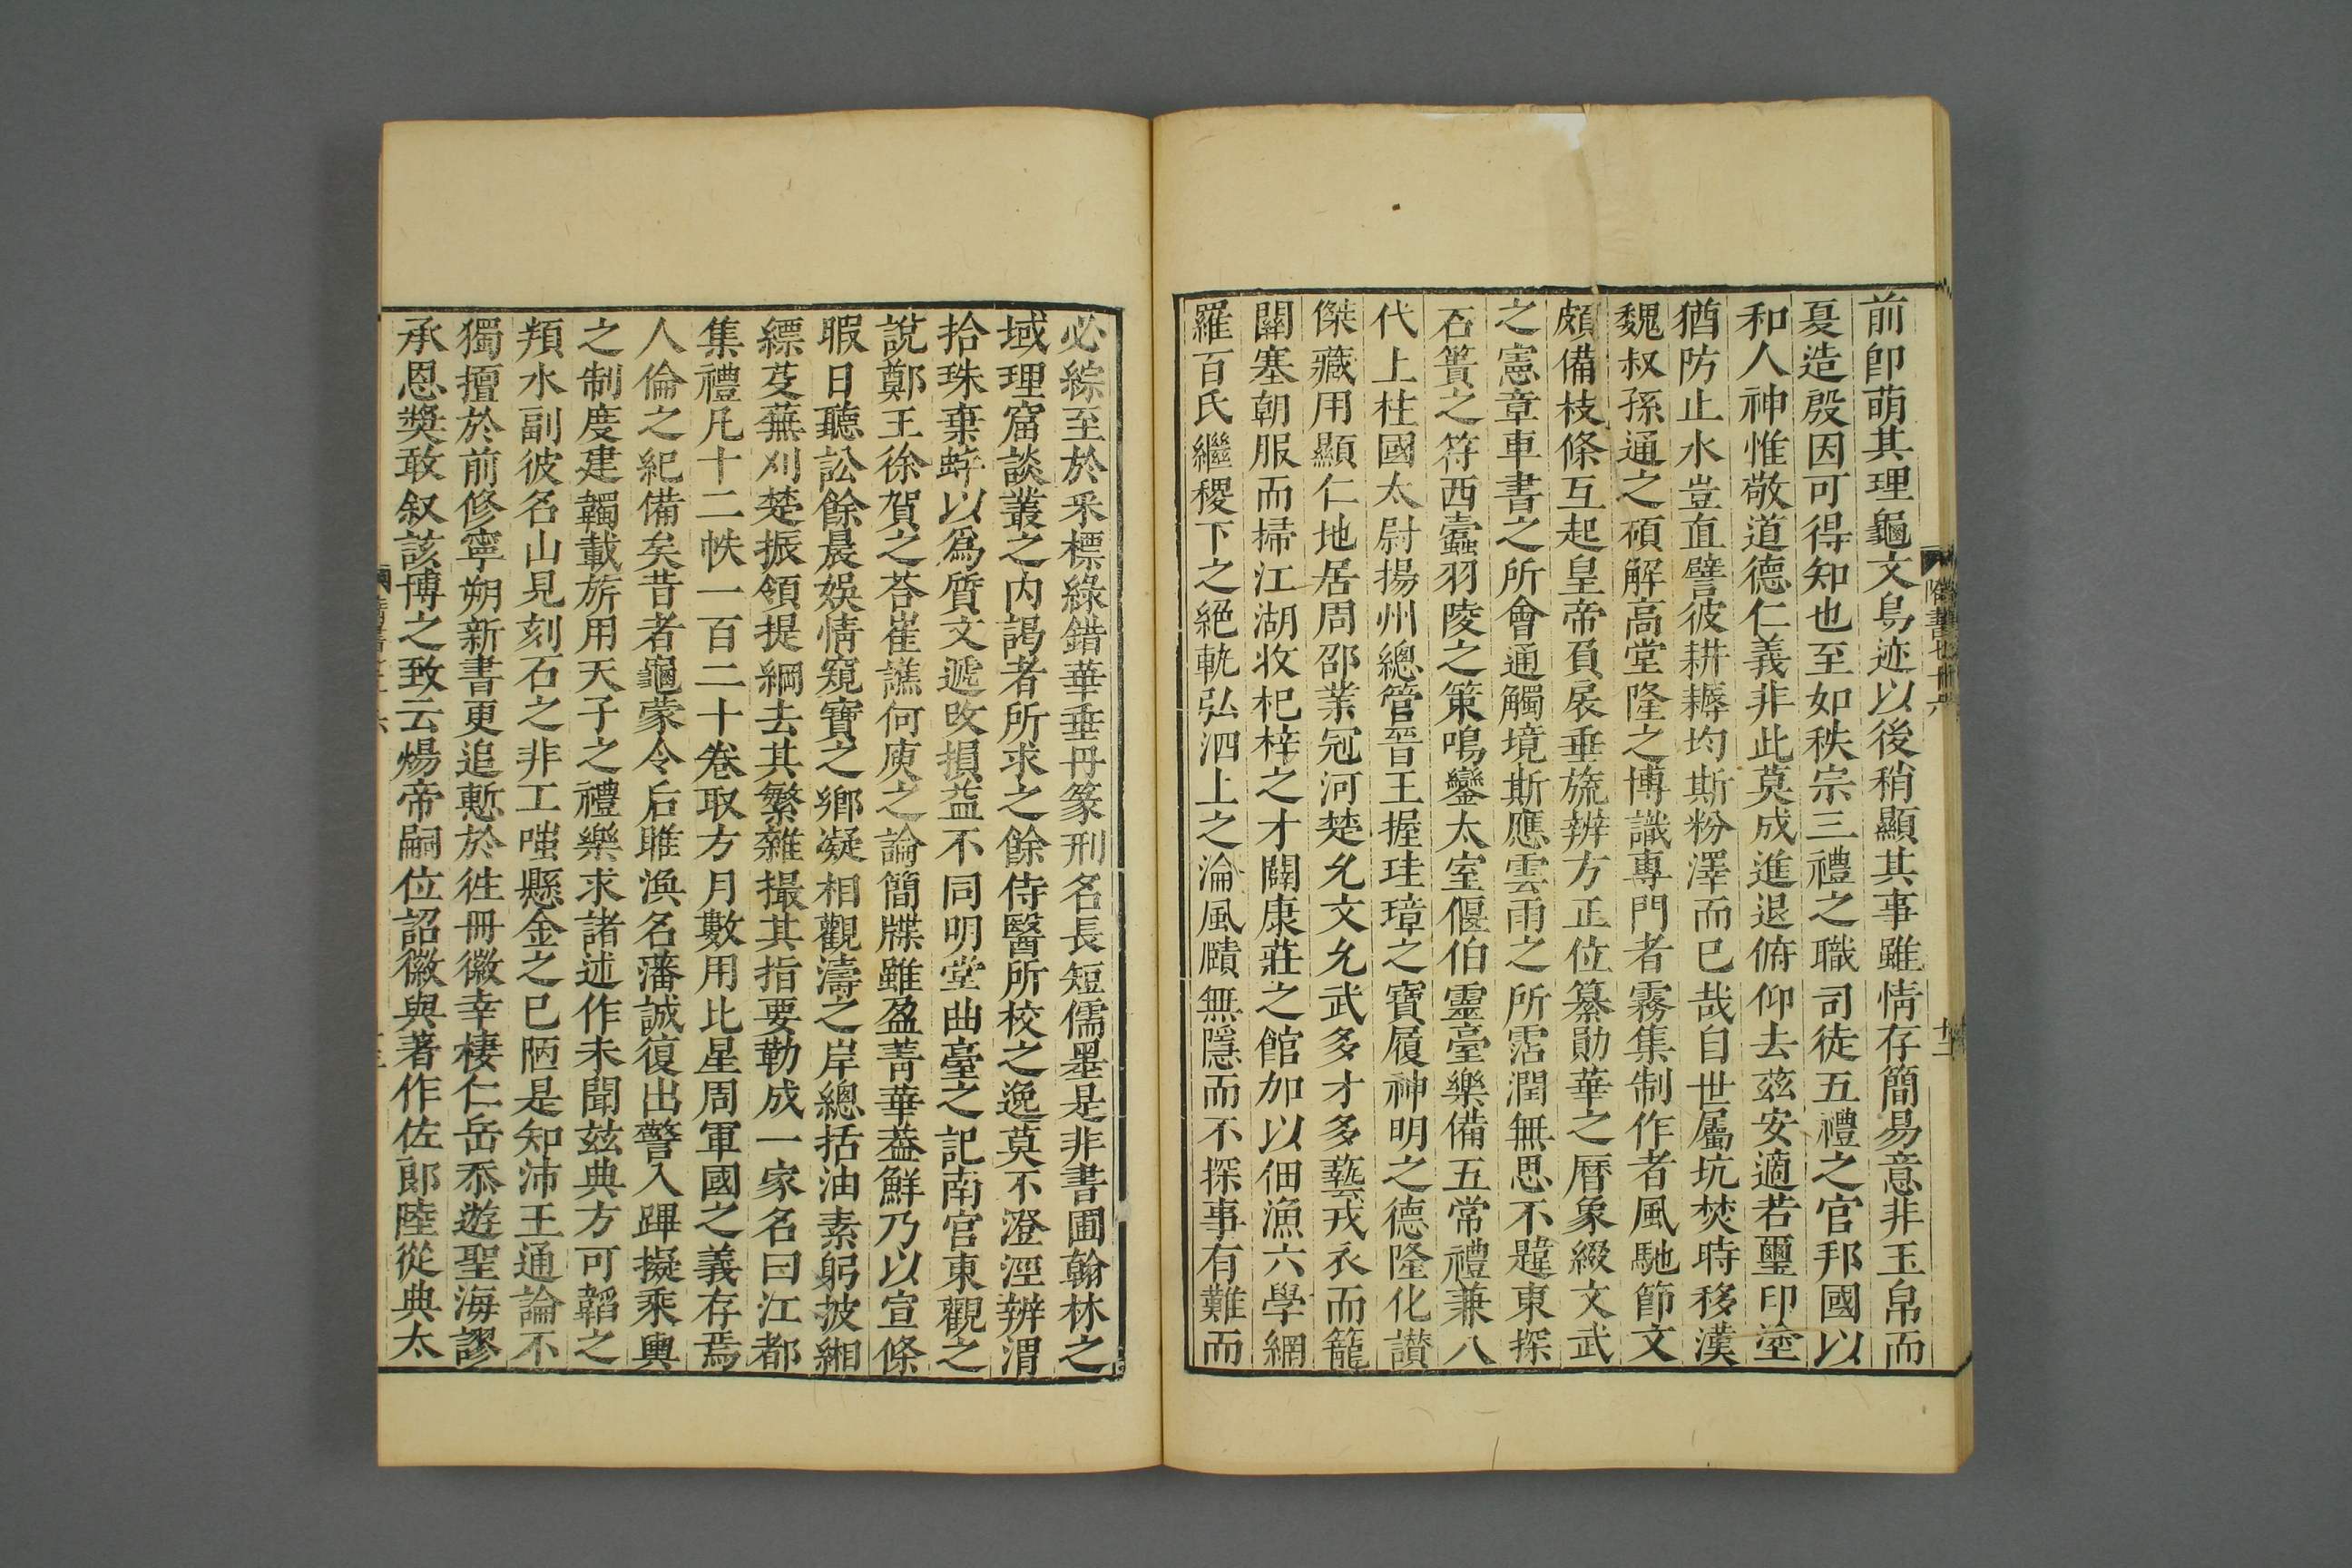 前卽萌其理龜文鳥迹以後稍顯其事雖情存簡易意非玉帛而
夏造殷因可得知也至如秩宗三禮之職司徒五禮之官邦國以
和人神惟敬道德仁義非此莫成進退俯仰去茲安適若璽印塗
猶防止水豈直譬彼耕耨均斯粉澤而已哉自世屬坑焚時移漢
魏叔孫通之碩解高堂隆之博識專門者霧集制作者風馳節文
頗備枝條互起皇帝負扆垂旒辨方正位纂勛華之曆象綴文武
之憲章車書之所會通觸境斯應雲雨之所霑潤無思不韙東探
石簣之符西蠹羽陵之策鳴鑾太室偃伯靈臺樂備五常禮兼八
代上柱國太尉揚州總管晉王握珪璋之寶履神明之德隆化讃
傑藏用顯仁地居周邵業冠河楚允文允武多才多藝戎衣而籠
關塞朝服而掃江湖收杞梓之才闢康莊之館加以佃漁六學網
羅百氏繼稷下之絕軌弘泗上之淪風賾無隱而不探事有難而
必綜至於采標綠錯華垂丹篆刑名長短儒墨是非書圃翰林之
域理窟談叢之內謁者所求之餘侍醫所校之逸莫不澄涇辨渭
拾珠棄蚌以爲質文遞改損益不同明堂曲臺之記南宮東觀之
說鄭王徐賀之荅崔譙何庾之論簡牒雖盈菁華葢鮮乃以宣條
暇日聽訟餘晨娛情窺寶之鄉凝相觀濤之岸總括油素躬披緗
縹芟蕪刈楚振領提綱去其繁雜撮其指要勒成一家名曰江都
集禮凡十二帙一百二十卷取方月數用比星周軍國之義存焉
人倫之紀備矣昔者龜蒙令后睢渙名藩誠復出警入蹕擬乘輿
之制度建韣載旂用天子之禮樂求諸述作未聞茲典方可韜之
頖水副彼名山見刻石之非工嗤懸金之已陋是知沛王通論不
獨擅於前修寧朔新書更追慙於徃冊徽幸棲仁岳忝遊聖海謬
承恩獎敢叙該博之致云煬帝嗣位詔徽與著作佐郎陸從典太
隋書七十六
十二